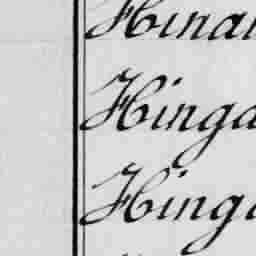 Hinai
Hinga
Hinga